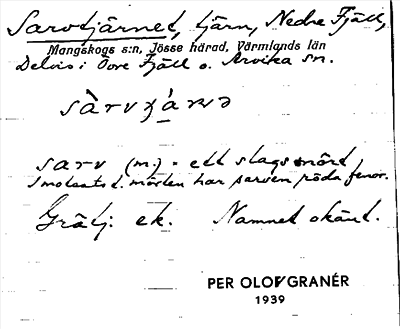 Sarvtjärnet, tjärn, Nedre Fjäll,
Mangskogs s:n, Jösse härad, Värmlands län
Delvis i Övre Fjäll o. Arvika sn.
sarv (m.) = ett slags mört
I motsats t. mörten har sarven röda fenor.
Grätj: ek. Namnet okänt.
PER OLOF GRANÉR
1939